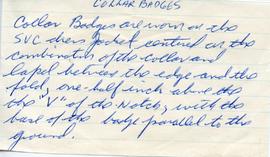 COLLAR BADGES
Collar Badges are worn on the
SVC dress jacket centred on the
combination of the collar and
lapel between the edge and the
fold, one-half inch above the
the "V" of the Notch, with the
base of the badge parallel to the
ground.